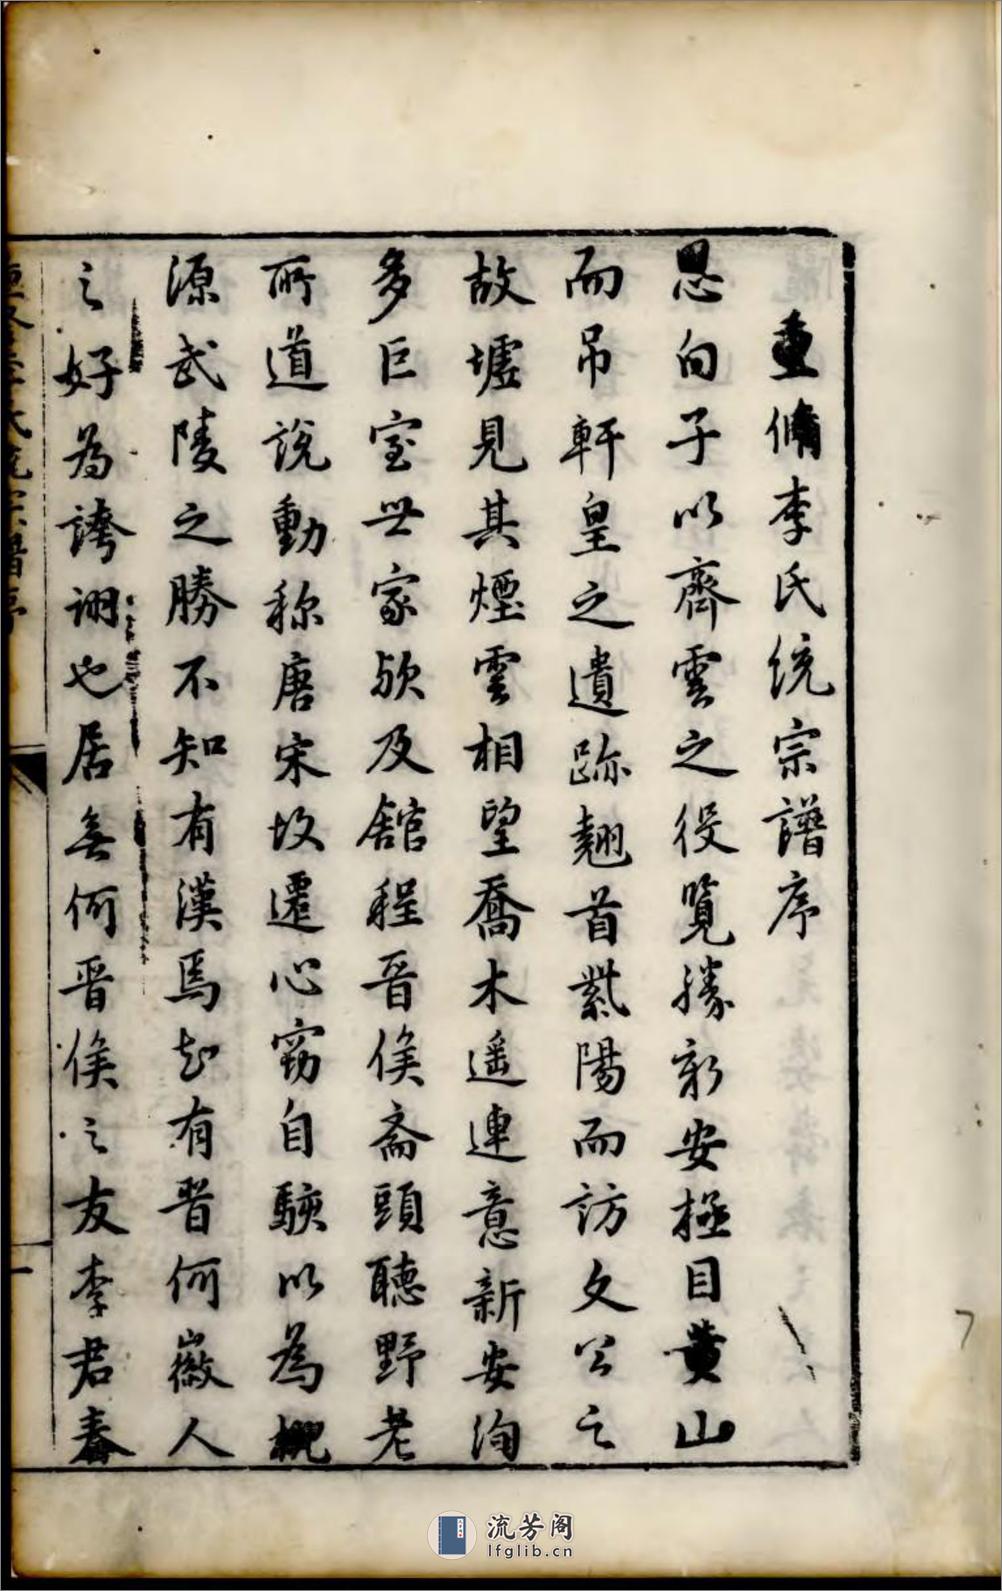 重脩李氏統宗譜序
思白子以齊雲之役覽勝新安極目黄山
而吊軒皇之遺跡翹首紫陽而訪文公之
故墟見其煙雲相望喬木遥連意新安洵
多巨室世家欤及舘程晋侯斋頭聽野老
所道説動称唐宋故遷心窃自騃以為桃
源武陵之勝不知有漢焉知有晋何嶶人
之好為誇詡也居無何晋侯之友李君春
氏統宗譜序
一
7
流芳阁
lfglib.cn